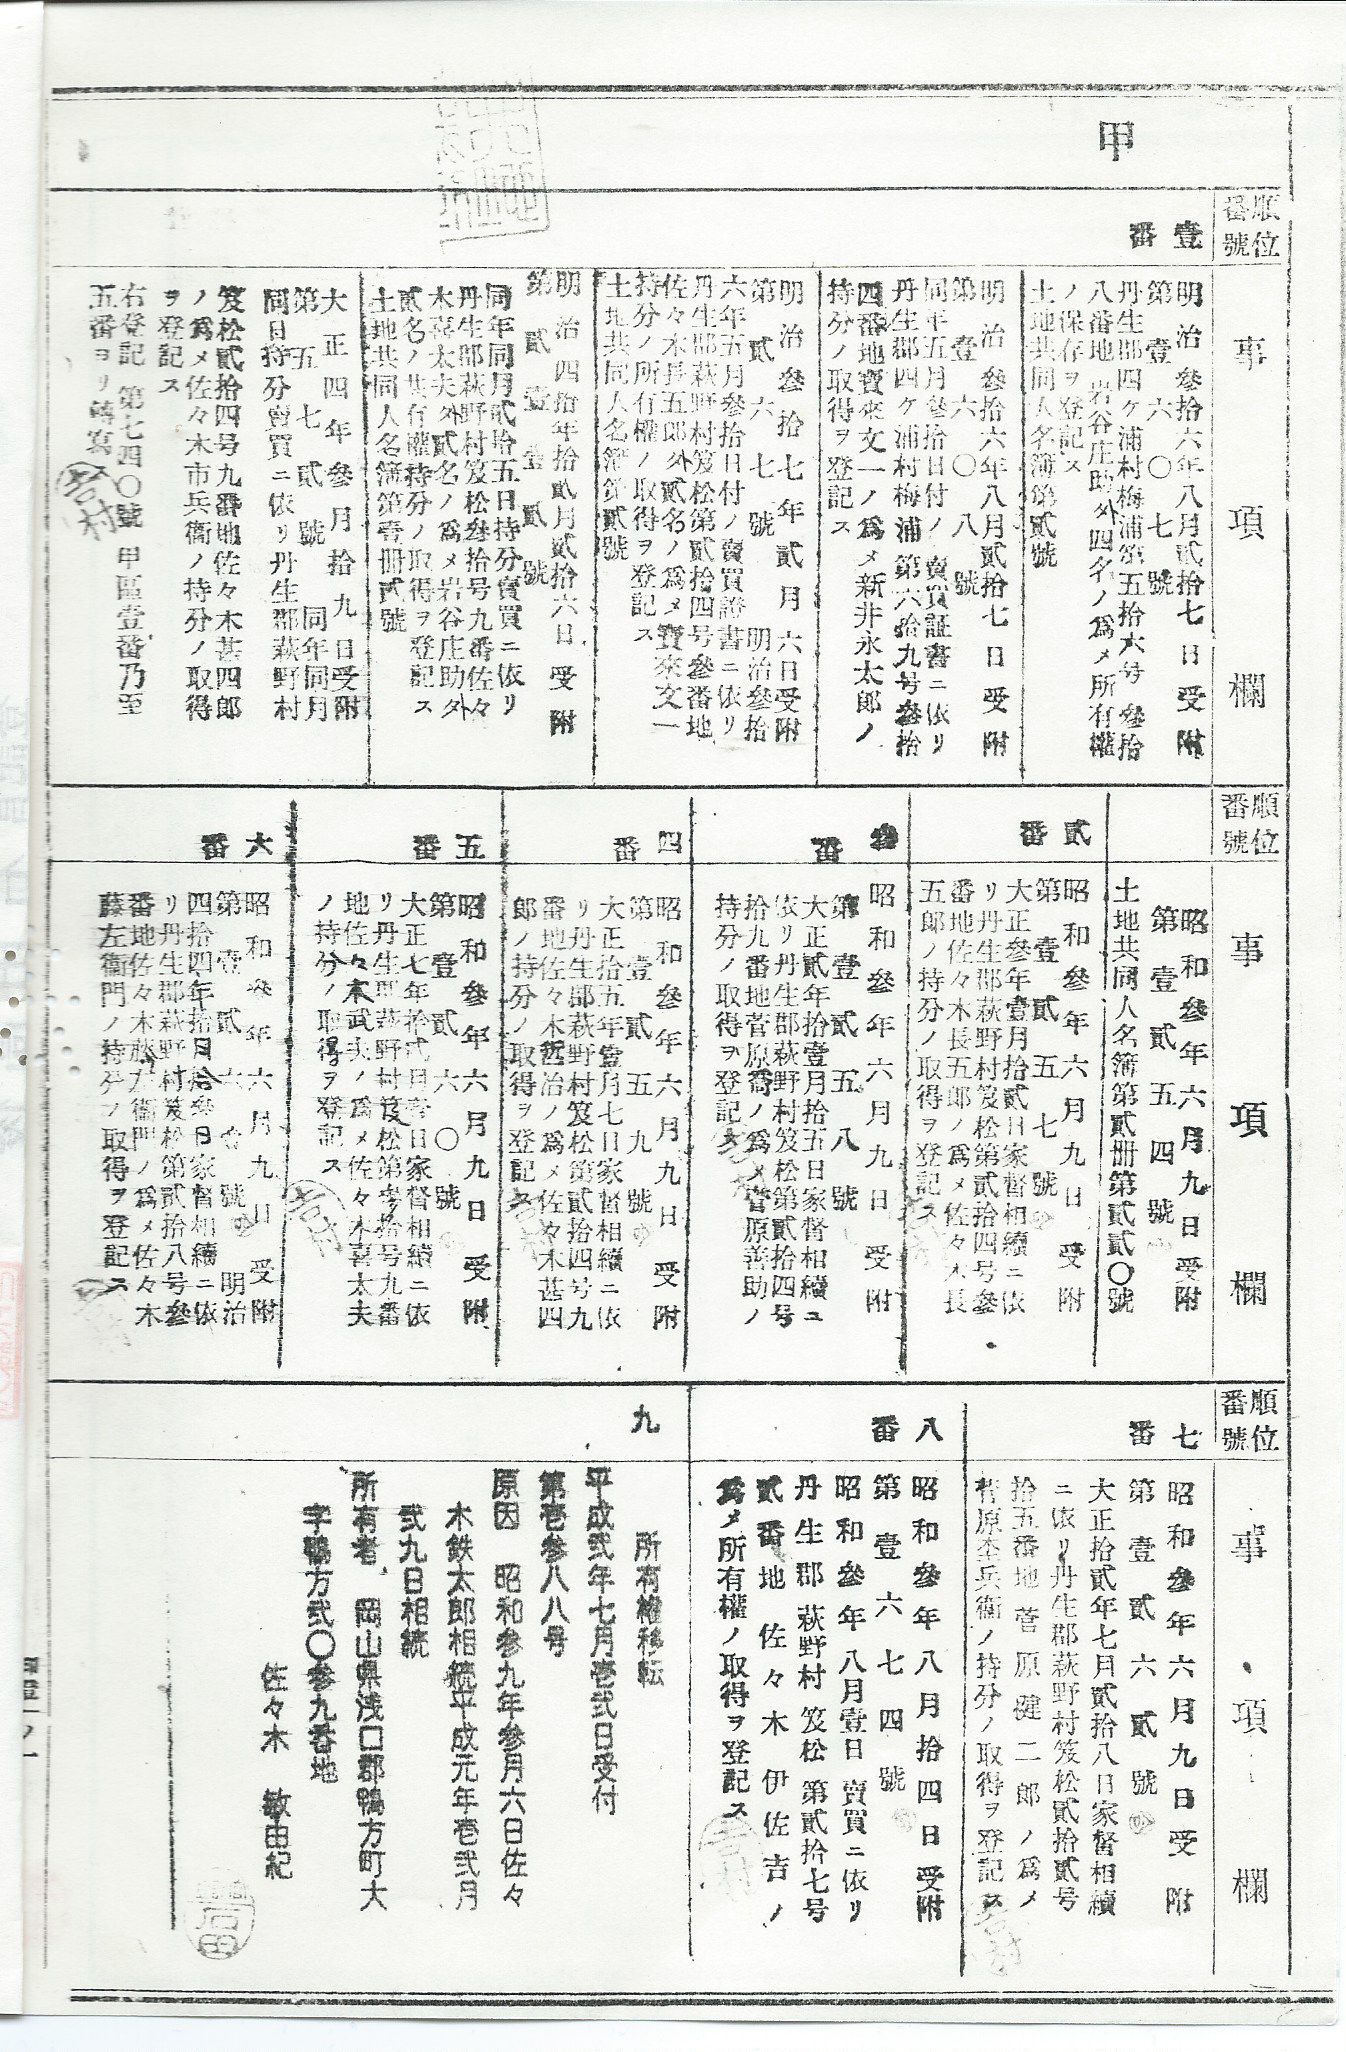 甲
順位番號
事項欄
壹番
明治參拾六年八月貳拾七日受附
第壹六〇七號
丹生郡四ケ浦村梅浦第五拾六号參拾
八番地 岩谷庄助外四名ノ爲メ所有權
ノ保存ヲ登記ス
土地共同人名簿第貳號
明治參拾六年八月貳拾七日受附
第壹六〇八號
同年五月參拾日付ノ賣買証書ニ依リ
丹生郡四ケ浦村梅浦第六拾九号參拾
四番地寶來文一ノ爲メ新井永太郎ノ
持分ノ取得ヲ登記ス
明治參拾七年貳月六日受附
第貳六七號 明治參拾
六年五月參拾日付ノ賣買證書ニ依リ
丹生郡萩野村笈松第貳拾四号參番地
佐々木長五郎外貳名ノ爲メ寶來文一
持分ノ所有權ノ取得ヲ登記ス
土地共同人名簿第貳號
明治四拾年拾貳月貳拾六日受附
第貳壹壹貳號
同年同月貳拾五日持分賣買ニ依リ
丹生郡萩野村笈松參拾号九番佐々
木喜太夫外貳名ノ爲メ岩谷庄助外
貳名ノ共有權持分ノ取得ヲ登記ス
土地共同人名簿第壹册貳號
大正四年參月拾九日受附
第五七貳號 同年同月
同日持分賣買ニ依リ丹生郡萩野村
笈松貳拾四号九番地佐々木甚四郎
ノ爲メ佐々木市兵衞ノ持分ノ取得
ヲ登記ス
右登記第七四〇號甲區壹番乃至
五番ヨリ轉寫
吉村
順位番號
事項欄
昭和參年六月九日受附
第壹貳五四號
土地共同人名簿第貳册第貳貳〇號
貳番
昭和參年六月九日受附
第壹貳五七號
大正參年壹月拾貳日家督相續ニ依
リ丹生郡萩野村笈松第貳拾四号參
番地佐々木長五郎ノ爲メ佐々木長
五郎ノ持分ノ取得ヲ登記ス
參番
昭和參年六月九日受附
第壹貳五八號
大正貳年拾壹月拾五日家督相續ニ
依リ丹生郡萩野村笈松第貳拾四号
拾九番地菅原喬ノ爲メ菅原善助ノ
持分ノ取得ヲ登記ス
四番
昭和參年六月九日受附
第壹貳五九號
大正拾五年壹月七日家督相續ニ依
リ丹生郡萩野村笈松第貳拾四号九
番地佐々木哲治ノ爲メ佐々木甚四
郎ノ持分ノ取得ヲ登記ス
五番
昭和參年六月九日受附
第壹貳六〇號
大正七年拾貳月壹日家督相續ニ依
リ丹生郡萩野村笈松第參拾号九番
地佐々木武夫ノ爲メ佐々木喜太夫
ノ持分ノ取得ヲ登記ス
吉村
六番
昭和參年六月九日受附
第壹貳六壹號 明治
四拾四年拾月拾參日家督相續ニ依
リ丹生郡萩野村笈松第貳拾八号參
番地佐々木藤左衞門ノ爲メ佐々木
藤左衞門ノ持分ノ取得ヲ登記ス
順位番號
事項欄
七番
昭和參年六月九日受附
第壹貳六貳號
大正拾貳年七月貳拾八日家督相續
ニ依リ丹生郡萩野村笈松貳拾貳号
拾五番地菅原健二郎ノ爲メ
菅原杢兵衞ノ持分ノ取得ヲ登記ス
吉村
八番
昭和參年八月拾四日受附
第壹六七四號
昭和參年八月壹日賣買ニ依リ
丹生郡萩野村笈松第貳拾七号
貳番地佐々木伊佐吉ノ
爲メ所有權ノ取得ヲ登記ス
吉村
九
所有権移転
平成弐年七月壱弐日受付
第壱参八八号
原因 昭和参九年参月六日佐々
木鉄太郎相続平成元年壱弐月
弐九日相続
所有者 岡山県浅口郡鴨方町大
字鴨方弐〇参九番地
佐々木 敏由紀